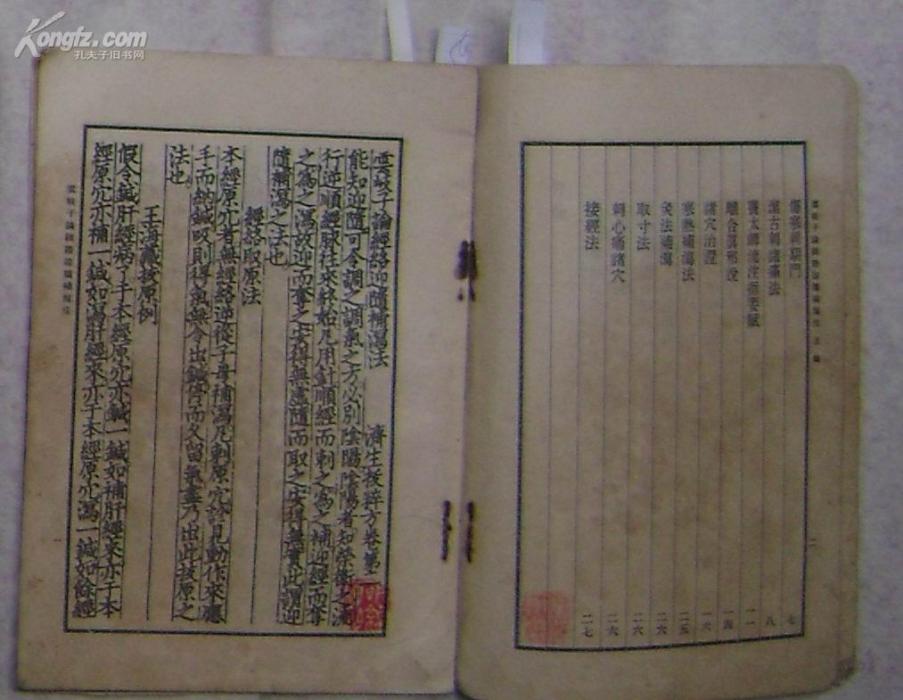 Kongfz.com
孔夫子旧书网
雲岐子論經絡迎隨補瀉法 目錄
二
傷寒刺期門 七
潔古刺諸痛法 八
竇太師流注指要賦 一一
離合真邪說 一四
諸穴治證 一六
寒熱補瀉法 二五
灸法補瀉 二六
取寸法 二六
刺心痛諸穴 二六
接經法 二七
雲岐子論經絡迎隨補瀉法 濟生拔粹方卷第二
能知迎隨可令調之調氣之方必別陰陽陰陽者知榮衛之流
行逆順經脉往來終始凡用針順經而刺之為之補迎經而奪
之為之瀉故迎而奪之安得無虛隨而取之安得無實此謂迎
隨補瀉之法也
經絡取原法
本經原穴者無經絡逆從子母補瀉凡刺原穴診見動作來應
手而納鍼吸則得氣無令出鍼停而久留氣盡乃出此拔原之
法也
王海藏拔原例
假令鍼肝經病了于本經原穴亦鍼一鍼如補肝經來亦于本
經原穴亦補一鍼如瀉肝經來亦于本經原穴瀉一鍼如餘經
雲岐子論經絡迎隨補瀉法
一